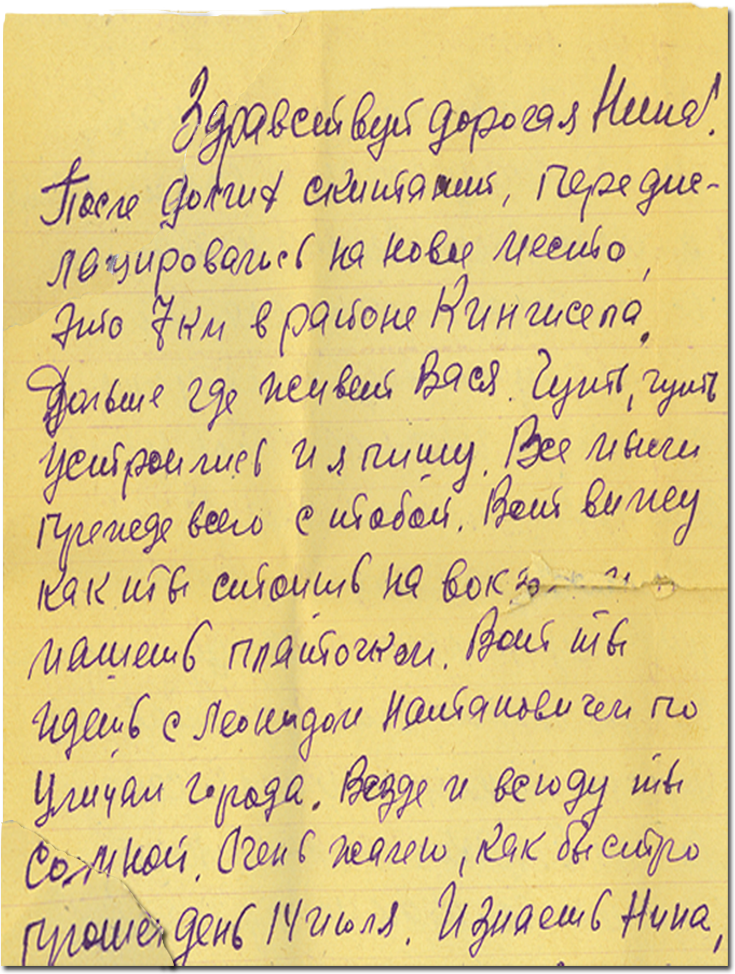 Здравствуй дорогая Нина!
После долгих скитаний, передис-
лацировались на новое место,
это 7км в районе Кингисепа,
Дальше где живет Вася. Чуть, чуть
устроились и я пишу. Все мысли
прежде всего с тобой. Вот вижу
как ты стоишь на
машешь платочком. Вот ты
идешь с Леонидом Натановичем по
улицам города. Везде и всюду ты
со мной. Очень жалею, как быстро
прошел день 14 июля. И знаешь Нина,